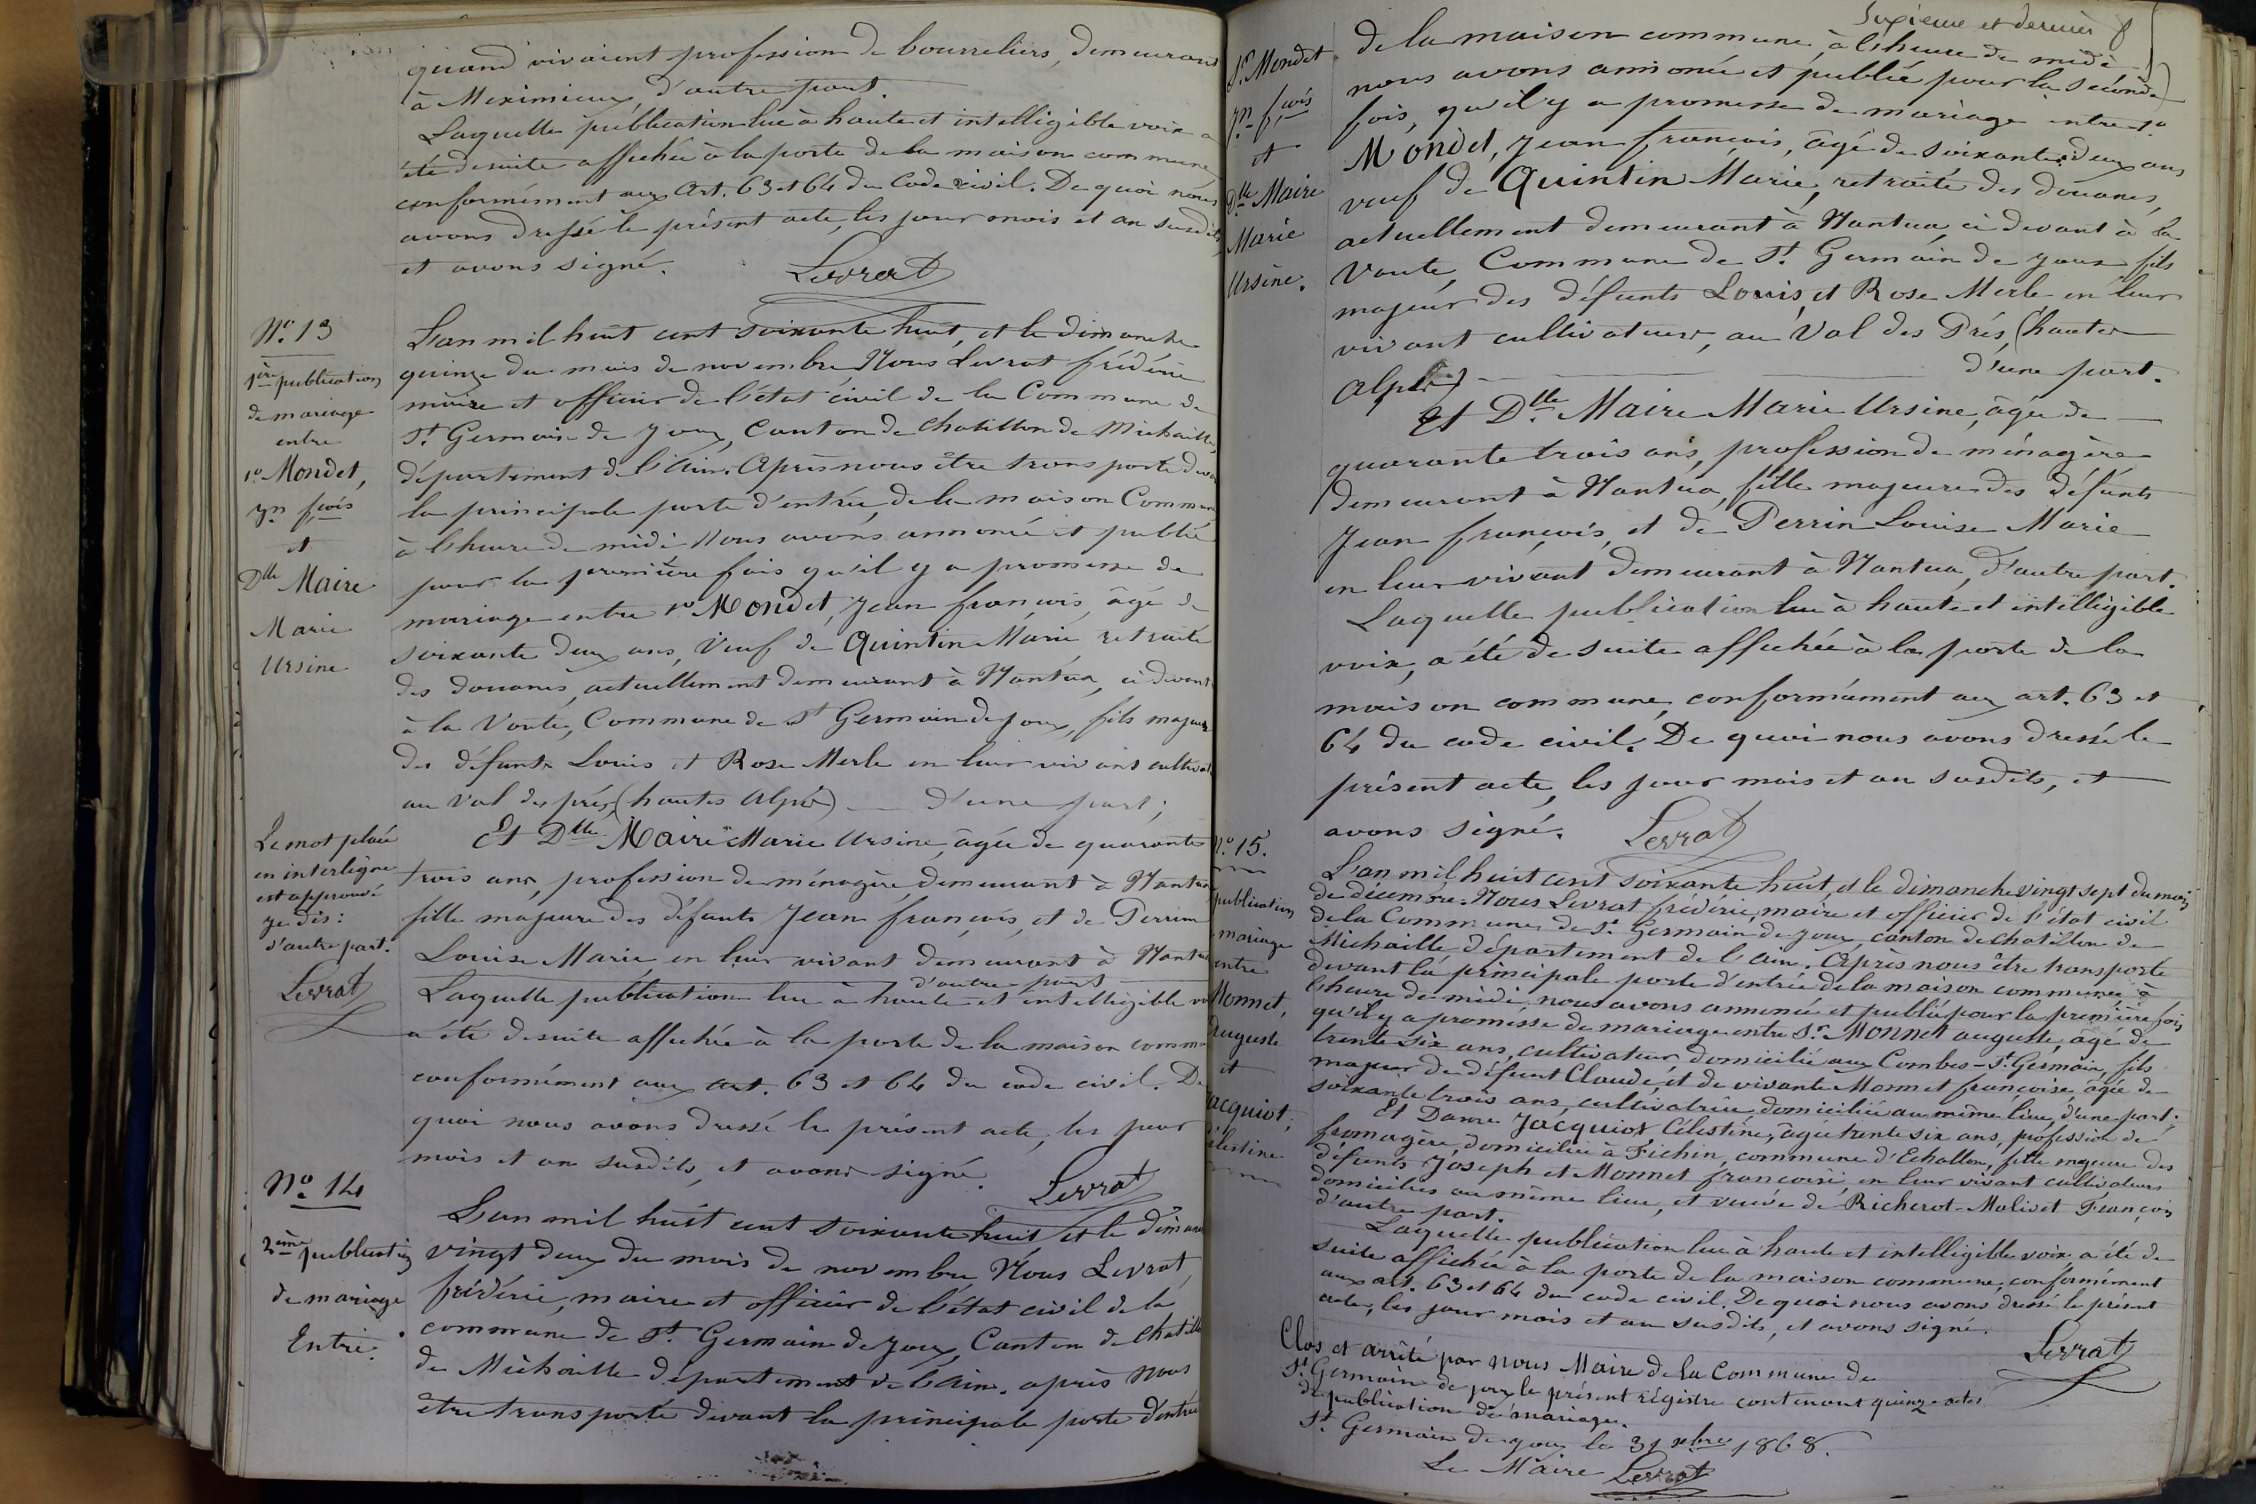 quand vivaient profession de bourreliers, demeurant
à Meximieux, d'autre part.
Laquelle publication lue à haute et intelligible voix a
été desuite affichée à la porte de la maison commune
conformément aux Art. 63 et 64 du Code civil. De quoi nous
avons dressé le présent acte, les jour mois et an susdits
et avons signé.
Levrat
No. 13
1ère publication
de mariage
entre
1o Mondet,
Jn. fçois
et
Dlle Maire
Marie
Ursine
L'an mil huit cent soixante huit, et le dimanche
quinze du mois de novembre Nous Levrat frédéric
maire et officier de l'état civil de la Commune de
St. Germain de Joux, Canton de Chatillon de Michaille,
département de l'Ain. Après nous être transporté devant
la principale porte d'entrée, de la maison Commune
à l'heure de midi Nous avons annoncé et publié
pour la première fois qu'il y a promesse de
mariage entre 1o Mondet, Jean françois, âgé de
soixante deux ans, Veuf de Quintin Marie, retraité
des douanes, actuellement demeurant à Nantua, ci devant
à la Voute, Commune de St Germain de Joux, fils majeur
des défunts Louis et Rose Merle en leur vivant cultivat
au Val des prés (hautes Alpes) — d'une part;
Et Dlle Maire Marie Ursine, âgée de quarante
trois ans, profession de ménagère, demeurant à Nantua
fille majeure des défunts Jean françois, et de Perrin
Louise Marie, en leur vivant demeurant à Nantua
d'autre part
Laquelle publication lue à haute et intelligible voi
a été desuite affichée à la porte de la maison comm
conformément aux art. 63 et 64 du code civil. De
quoi nous avons dressé le présent acte, les jour
mois et an susdits, et avons signé.
Levrat
Le mot placé
en interligne
est approuvé
je dis:
d'autre part.
Levrat
No. 14
2ème publication
de mariage
Entre.
L'an mil huit cent soixante huit et le diman
vingt deux du mois de novembre, Nous Levrat,
frédéric, maire et officier de l'état civil de la
commune de St. Germain de Joux, Canton de Chatill
de Michaille département de l'Ain. après nous
être transporté devant la principale porte d'entrée
Sixième et dernier f
Sr. Mondet
Jn. fçois
et
Dlle Maire
Marie
Ursine.
de la maison commune, à l'heure de midi
nous avons annoncé et publié pour la seconde
fois, qu'il y a promesse de mariage entre 1o
Mondet, Jean françois, âgé de soixante deux ans
veuf de Quintin Marie, retraité des douanes,
actuellement demeurant à Nantua, ci devant à la
Voute, Commune de St. Germain de Joux fils
majeur des défunts Louis et Rose Merle en leur
vivant cultivateurs, au Val des Prés, (hautes
Alpes) — d'une part.
Et Dlle Maire Marie Ursine, âgée de
quarante trois ans, profession de ménagère
demeurant à Nantua, fille majeure des défunts
Jean françois, et de Perrin Louise Marie
en leur vivant demeurant à Nantua, d'autre part.
Laquelle publication lue à haute et intelligible
voix, a été de suite affichée à la porte de la
maison commune, conformément aux art. 63 et
64 du code civil. De quoi nous avons dressé le
présent acte, les jour mois et an susdits, et
avons signé.
Levrat
No. 15.
publication
mariage
entre
Monnet,
Auguste
et
Jacquiot,
Célestine
L'an mil huit cent soixante huit, et le dimanche vingt sept du mois
de décembre. Nous Levrat frédéric, maire et officier de l'état civil
de la Commune de St. Germain de Joux, canton de Chatillon de
Michaille, département de l'ain. Après nous être transporté
devant la principale porte d'entrée de la maison commune à
l'heure de midi, nous avons annoncé et publié pour la première fois
qu'il y a promesse de mariage entre Sr. Monnet auguste, âgé de
trente six ans, cultivateur, domicilié aux Combes-St. Germain, fils
majeur de défunt Claude, et de vivante Monnet françoise, âgée de
soixante trois ans, cultivatrice, domiciliée au même lieu, d'une part;
Et Dame Jacquiot Célestine, âgée trente six ans, profession de
fromagère, domiciliée à Fichin, commune d'Echallon, fille majeure des
défunts Joseph et Monnet françoise, en leur vivant cultivateurs
domiciliés au même lieu, et veuve de Richerot-Molivet François
d'autre part.
Laquelle publication lue à haute et intelligible voix, a été de
suite affichée à la porte de la maison commune, conformément
aux art. 63 et 64 du code civil. De quoi nous avons dressé le présent
acte, les jour mois et an susdits, et avons signé.
Levrat
Clos et arrêté par nous Maire de la Commune de
St Germain de joux le présent régistre contenant quinze actes
de publication de mariage.
St. Germain de joux le 31 xbre 1868.
Le Maire Levrat